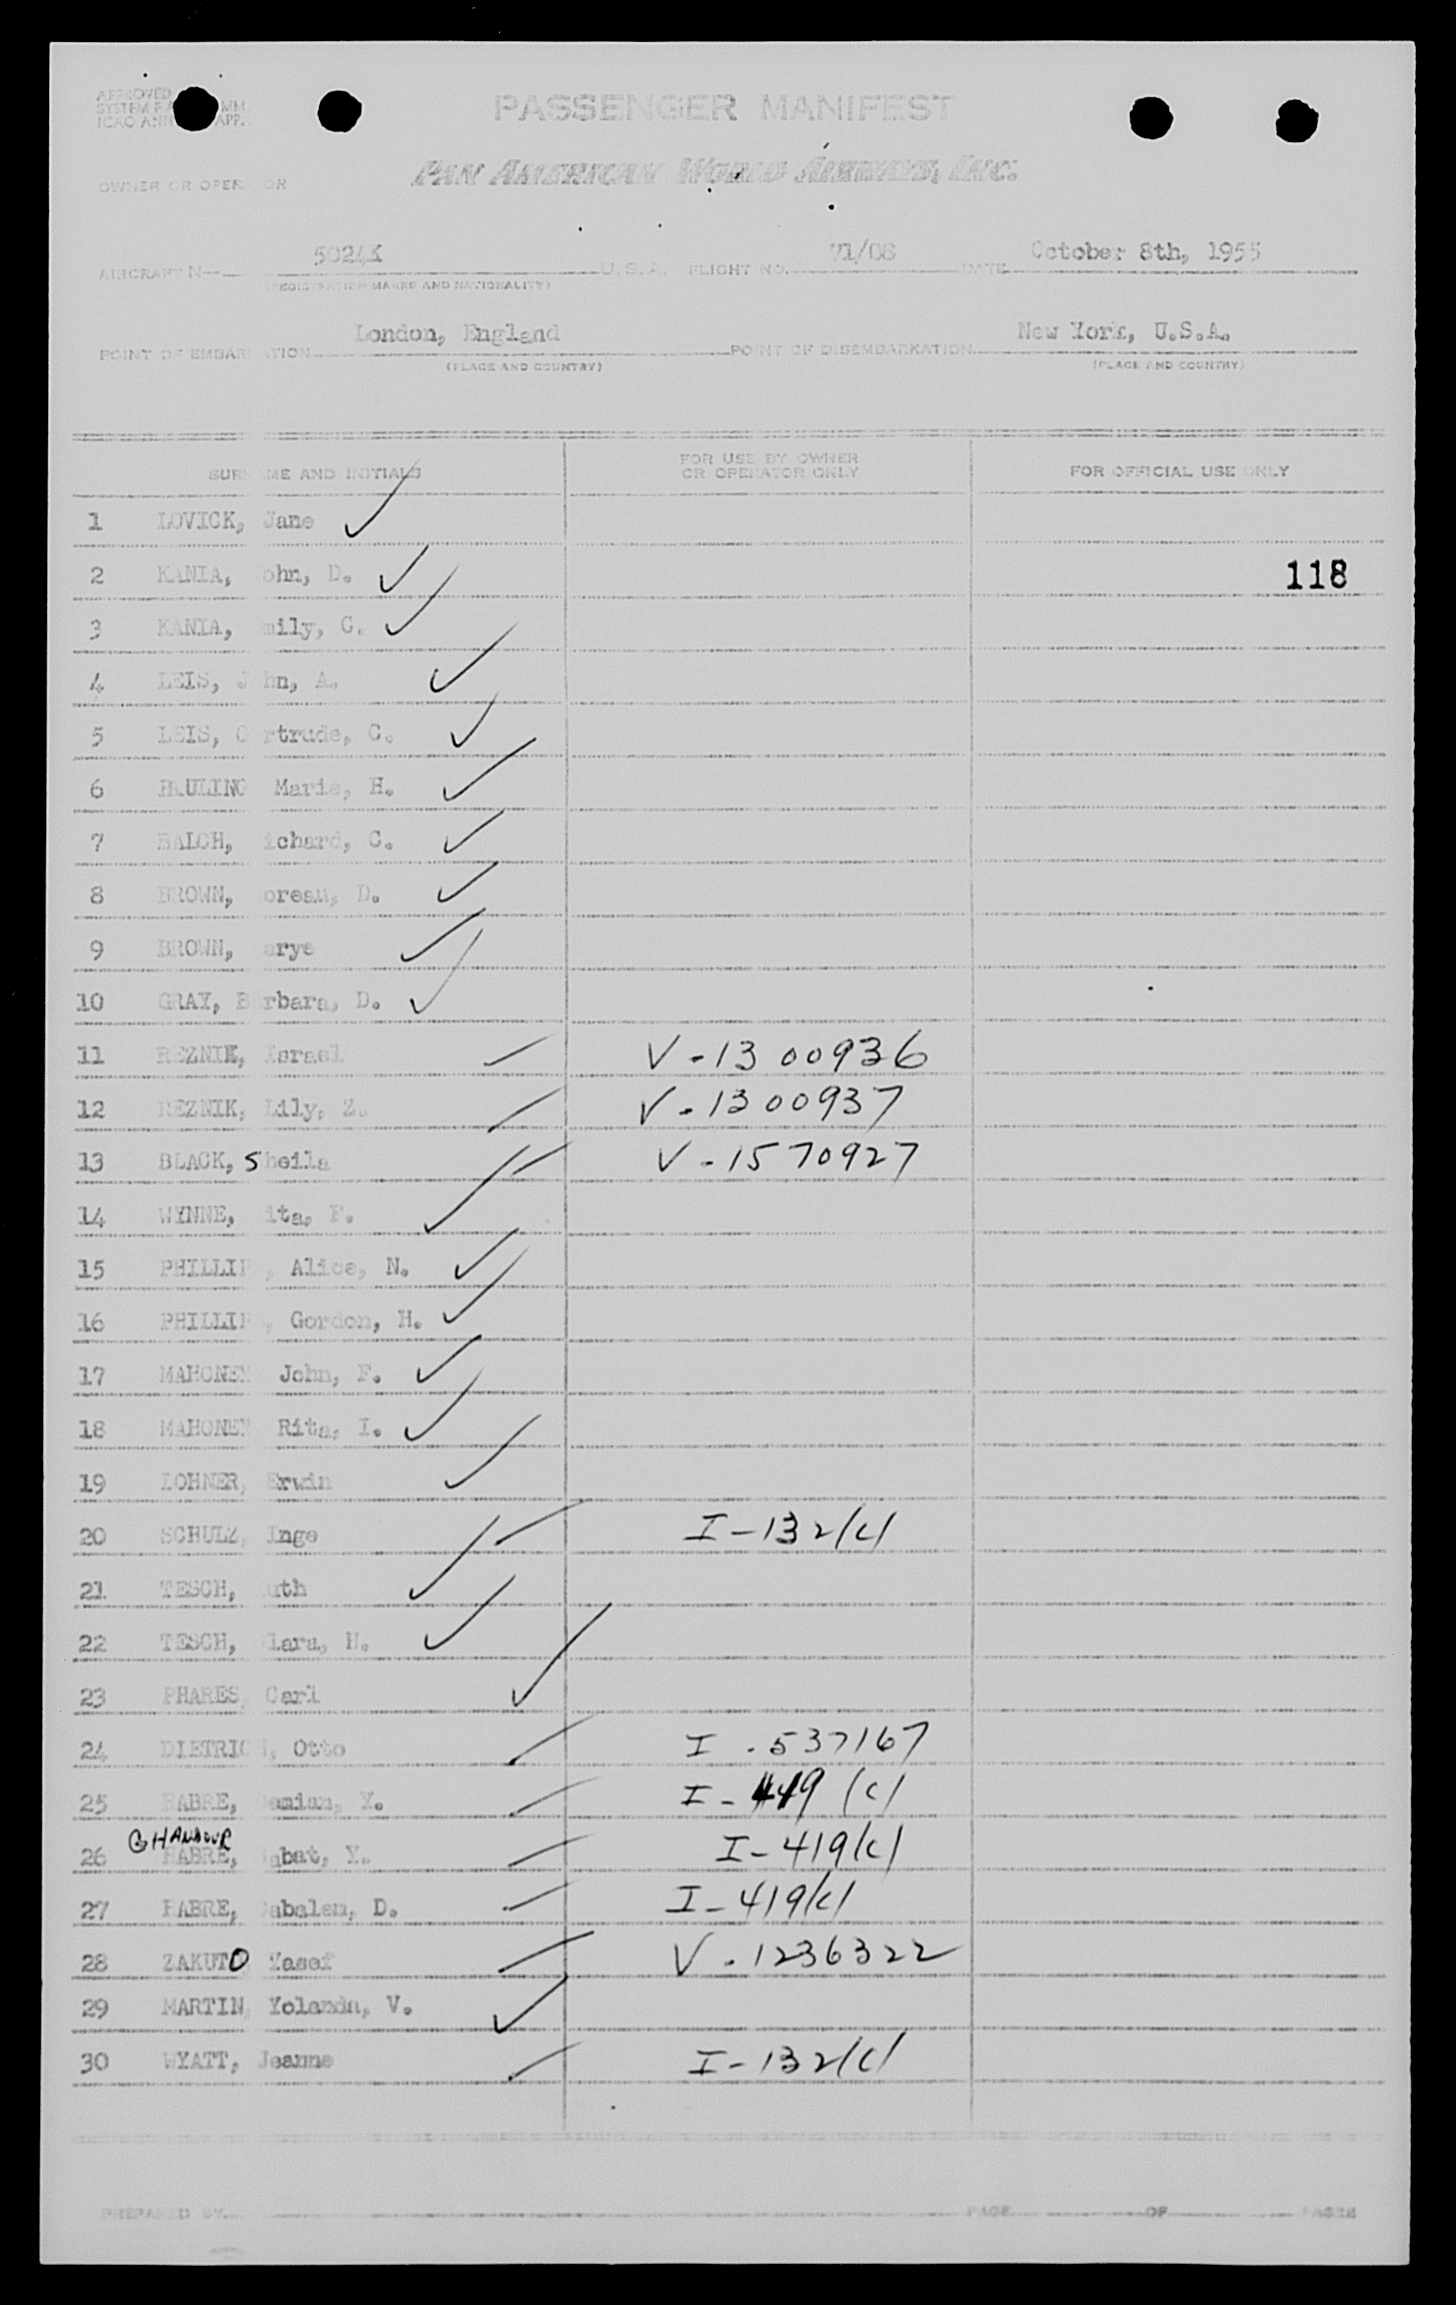 APPROVED
SYSTEM
ICAO ANN APP.
PASSENGER MANIFEST
PAN AMERICAN WORLD AIRWAYS, INC.
OWNER OR OPER OR
AIRCRAFT N— 5024K U.S.A. FLIGHT NO. 71/08 DATE October 8th, 1955
(REGISTRATION MARKS AND NATIONALITY)
POINT OF EMBAR ATION London, England POINT OF DISEMBARKATION New York, U.S.A.
(PLACE AND COUNTRY) (PLACE AND COUNTRY)
SUR ME AND INITIALS FOR USE BY OWNER OR OPERATOR ONLY FOR OFFICIAL USE ONLY
1 LOVICK, Jane
2 KANIA, ohn, D. 118
3 KANIA, mily, C.
4 LEIS, J hn, A.
5 LEIS, G rtrude, C.
6 PAULINO Marie, H.
7 BALCH, ichard, C.
8 BROWN, oream, D.
9 BROWN, arye
10 GRAY, B rbara, D.
11 REZNIK, Israel V-1300936
12 REZNIK, Lily, Z. V-1300937
13 BLACK, Sheila V-1570927
14 WYNNE, ita, F.
15 PHILLIP , Alice, N.
16 PHILLIP , Gordon, H.
17 MAHONEY John, F.
18 MAHONEY Rita, I.
19 LOHNER, Erwin
20 SCHULZ, Inge I-132/c/
21 TESCH, uth
22 TESCH, lara, H.
23 PHARES, Carl
24 DIETRIC H, Otto I-537167
25 HABRE, amian, Y. I-449 /c/
GHANDOUR
26 HABRE, abat, Y. I-419/c/
27 HABRE, abalem, D. I-419/c/
28 ZAKUTO Yasef V-1236322
29 MARTIN, Yolanda, V.
30 WYATT, Jeanne I-132/c/
PREPARED BY PAGE OF PAGES